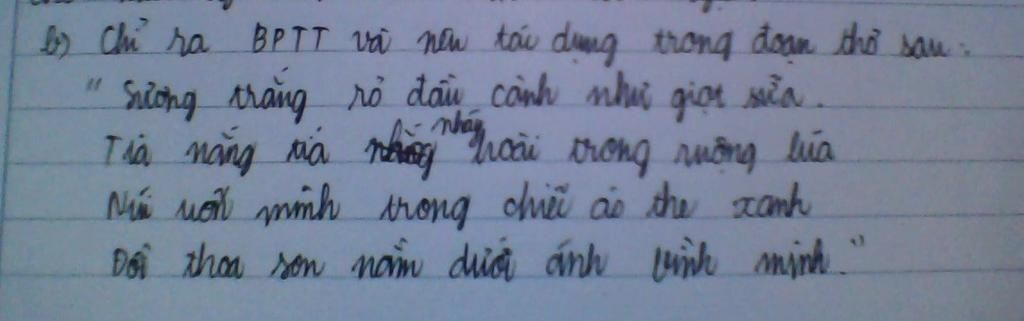 b) Chỉ ra BPTT và nêu tác dụng trong đoạn thơ sau:
"Sương trắng rỏ đầu cành như giọt sữa.
Tia nắng tía nháy hoài trong ruộng lúa
Núi uốn mình trong chiếc áo the xanh
Đồi thoa son nằm dưới ánh bình minh."